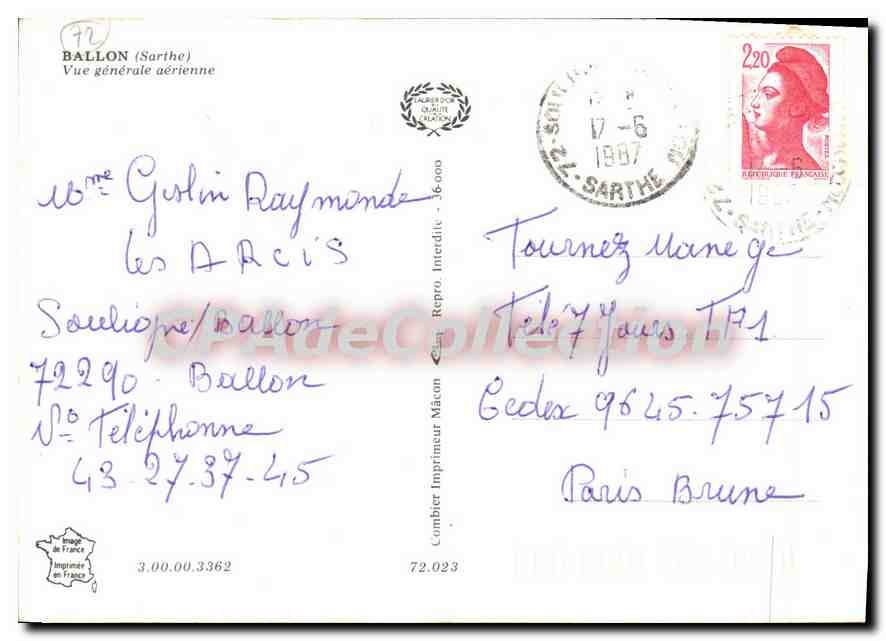 72
BALLON (Sarthe)
Vue générale aérienne
LAURIER D'OR
QUALITE
CREATION
17-6
1987
72 - SARTHE
2,20
POSTES
REPUBLIQUE FRANÇAISE
1987
72 - SARTHE
Mme Geslin Raymonde
les ARCIS
Souligné/Ballon
72290 - Ballon
No Téléphonne
43-27-37-45
Combier Imprimeur Mâcon
Repro. Interdite - 36-000
Tournez Manege
Télé 7 Jours TF1
Cedex 9645.75715
Paris Brune
CPAdeCollection
Image
de France
Imprimée
en France
3.00.00.3362
72.023